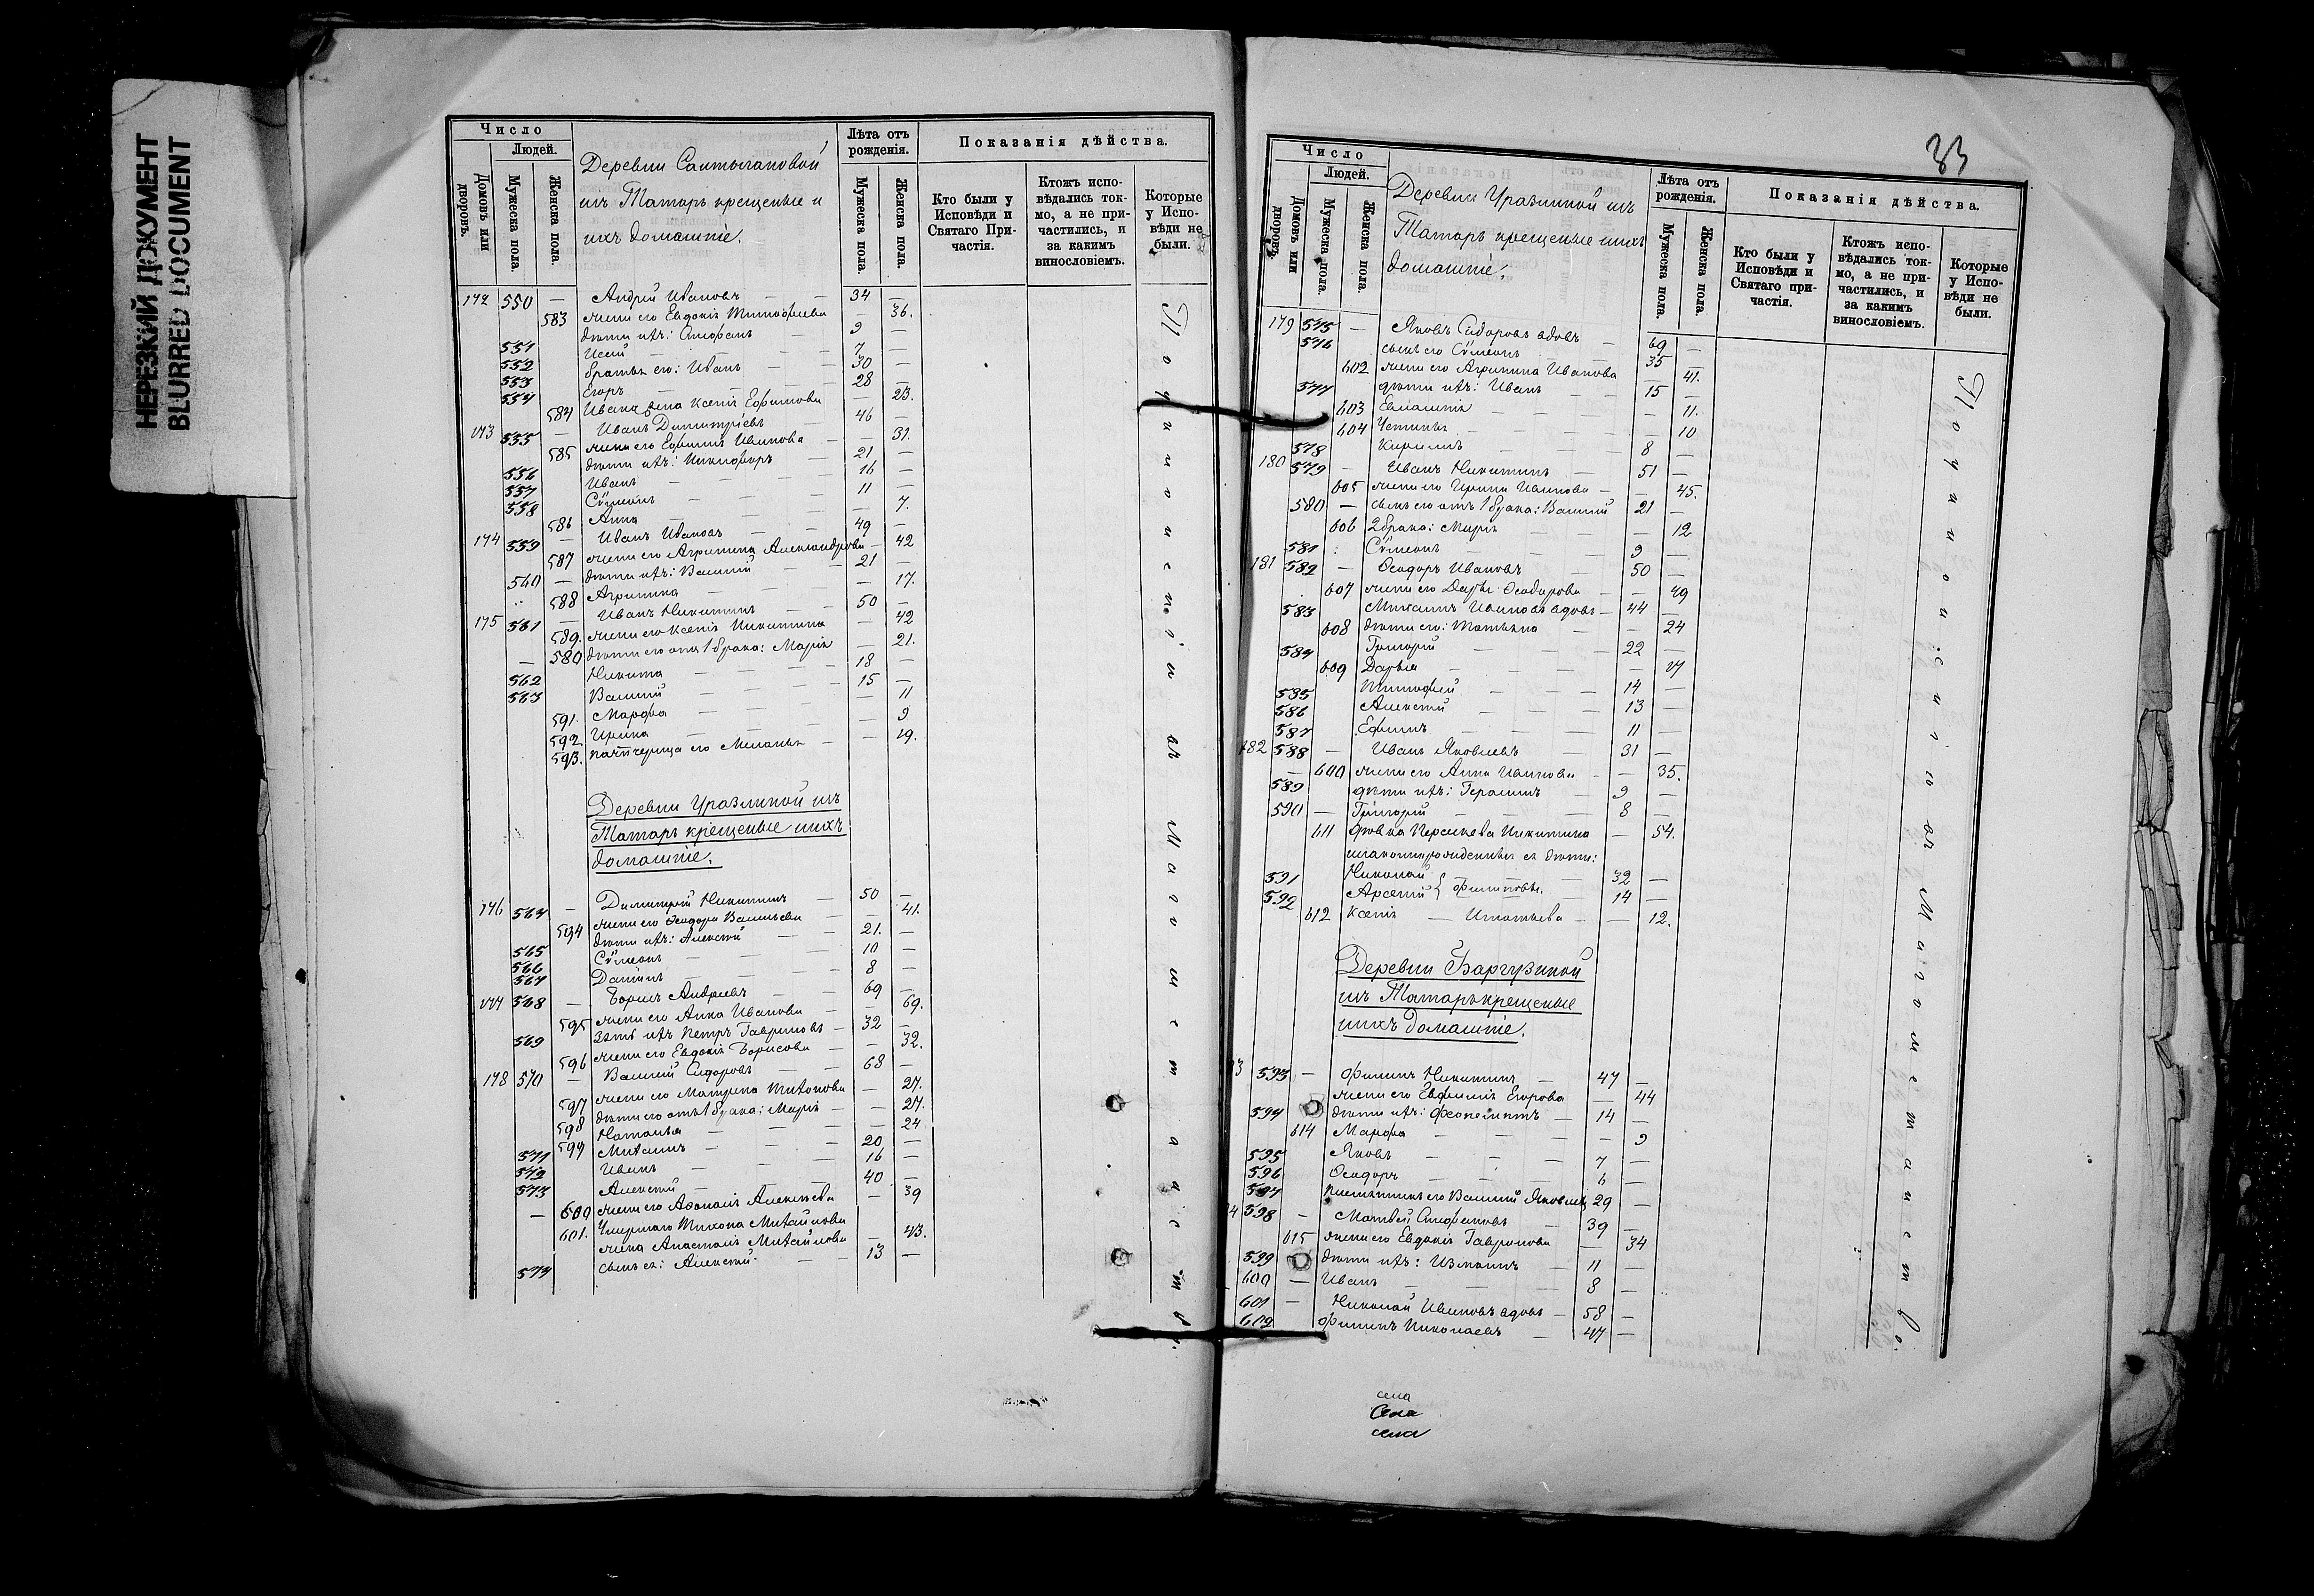 НЕРЕЗКИЙ ДОКУМЕНТ
BLURRED DOCUMENT
Число
Людей.
Домовъ или дворовъ.
Мужеска пола.
Женска пола.
Деревни
изъ Татаръ крещеные и
ихъ домашніе.
Лѣта отъ рожденія.
Мужеска пола.
Женска пола.
Показанія дѣйства.
Кто были у Исповѣди и Святаго Причастія.
Ктожъ исповѣдались токмо, а не причастились, и за какимъ винословіемъ.
Которые у Исповѣди не были.
172 550 — Андрей Ивановъ — 34 —
583 жена его Евдокія Тимофеева — 36.
дѣти ихъ: Стефанъ 9 —
551 7 —
552 братья его: Иванъ 30 —
553 Егоръ 28 —
554
584 Ивана жена Ксенія Ефимова — 23.
173 555 — Иванъ Димитріевъ 46 —
585 жена его Ефимія Иванова — 31.
дѣти ихъ: Никифоръ 21 —
556 Иванъ 16 —
557 Сѵмеонъ 11 —
558
586 Анна — 7.
174 559 — Иванъ Ивановъ 49 —
587 жена его Агрипина Александрова — 42
560 — дѣти ихъ: Василій 21 —
588 Агрипина — 17.
175 561 — Иванъ Никитинъ 50 —
589. жена его Ксенія Никитина — 42
580 дѣти его отъ 1 брака: Марія — 21.
562 Никита 18 —
563 Василій 15 —
591. Марфа — 11
592 Ирина — 9
593. падчерица его Меланья — 19.
Деревни Уразлиной изъ
Татаръ крещеные и ихъ
домашніе.
176 564 — Димитрій Никитинъ 50 —
594 жена его Ѳеодора Васильева — 41.
дѣти ихъ: Алексѣй 21. —
565 Сѵмеонъ 10 —
566 Даніилъ 8 —
567
177 568 — Борисъ Андреевъ 69 —
595 жена его Анна Иванова — 69.
569 зять ихъ Петръ Гавриловъ 32 —
596 жена его Евдокія Борисова — 32.
178 570 — Василій Сидоровъ 68 —
597 жена его Матрена — 27.
598 дѣти его отъ 1 брака: Марія — 27.
599 Наталья — 24
571 Михаилъ 20 —
572 Иванъ 16 —
573 Алексѣй 40 —
600 жена его Алексѣева — 39
601. Умершаго Тихона Михайлова
жена Анастасія Михайлова — 43.
574 сынъ ея: Алексѣй 13 —
По уклоненію въ Магометанство.
33
Число
Людей.
Домовъ или дворовъ.
Мужеска пола.
Женска пола.
Деревни Уразлиной изъ
Татаръ крещеные и ихъ
домашніе.
Лѣта отъ рожденія.
Мужеска пола.
Женска пола.
Показанія дѣйства.
Кто были у Исповѣди и Святаго причастія.
Ктожъ исповѣдались токмо, а не причастились, и за какимъ винословіемъ.
Которые у Исповѣди не были.
179 575 — Яковъ Сидоровъ вдовъ 69 —
576 сынъ его Сѵмеонъ 35 —
602 жена его Агрипина Иванова — 41.
577 дѣти ихъ: Иванъ 15 —
603 — 11.
604 — 10
578 Кириллъ 8 —
180 579 — Иванъ Никитинъ 51 —
605 жена его Ирина Иванова — 45.
580 — сынъ его отъ 1 брака: Василій 21 —
606 2 брака: Марія — 12
581 Сѵмеонъ 9 —
181 582 — Ѳеодоръ Ивановъ 50 —
607 жена его Дарья Ѳеодорова — 49
583 Михаилъ Ивановъ вдовъ 44 —
608 дѣти его: Татьяна — 24
584 Григорій 22 —
609 Дарья — 17
585 Тимофей 14 —
586 Алексѣй 13 —
587 Ефимъ 11 —
182 588 — Иванъ Яковлевъ 31 —
600 жена его Анна Иванова — 35.
589 дѣти ихъ: Герасимъ 9 —
590 — Григорій 8 —
611 вдова Никитина — 54.
незаконнорожденныя ея дѣти:
591 Николай 32 —
592 Арсеній } Филиповы. 14 —
612 Ксенія — Игнатьева — 12.
Деревни Баргузиной
изъ Татаръ крещеные
и ихъ домашніе.
3 593 — Филипъ Никитинъ 47 —
жена его Евфимія Егорова — 44
594 дѣти ихъ: Феоктистъ 14 —
614 Марфа — 9
595 Яковъ 7 —
596 Ѳеодоръ 6 —
597 племянникъ его Василій Яковлевъ 29 —
4 598 — Матвей Стефановъ 39 —
615 жена его Евдокія Гаврилова — 34
599 дѣти ихъ: Измаилъ 11 —
600 — Иванъ 8 —
601 — Николай Ивановъ вдовъ 58 —
602 Филипъ Николаевъ 47 —
По уклоненію въ Магометанство.
села
Села
села